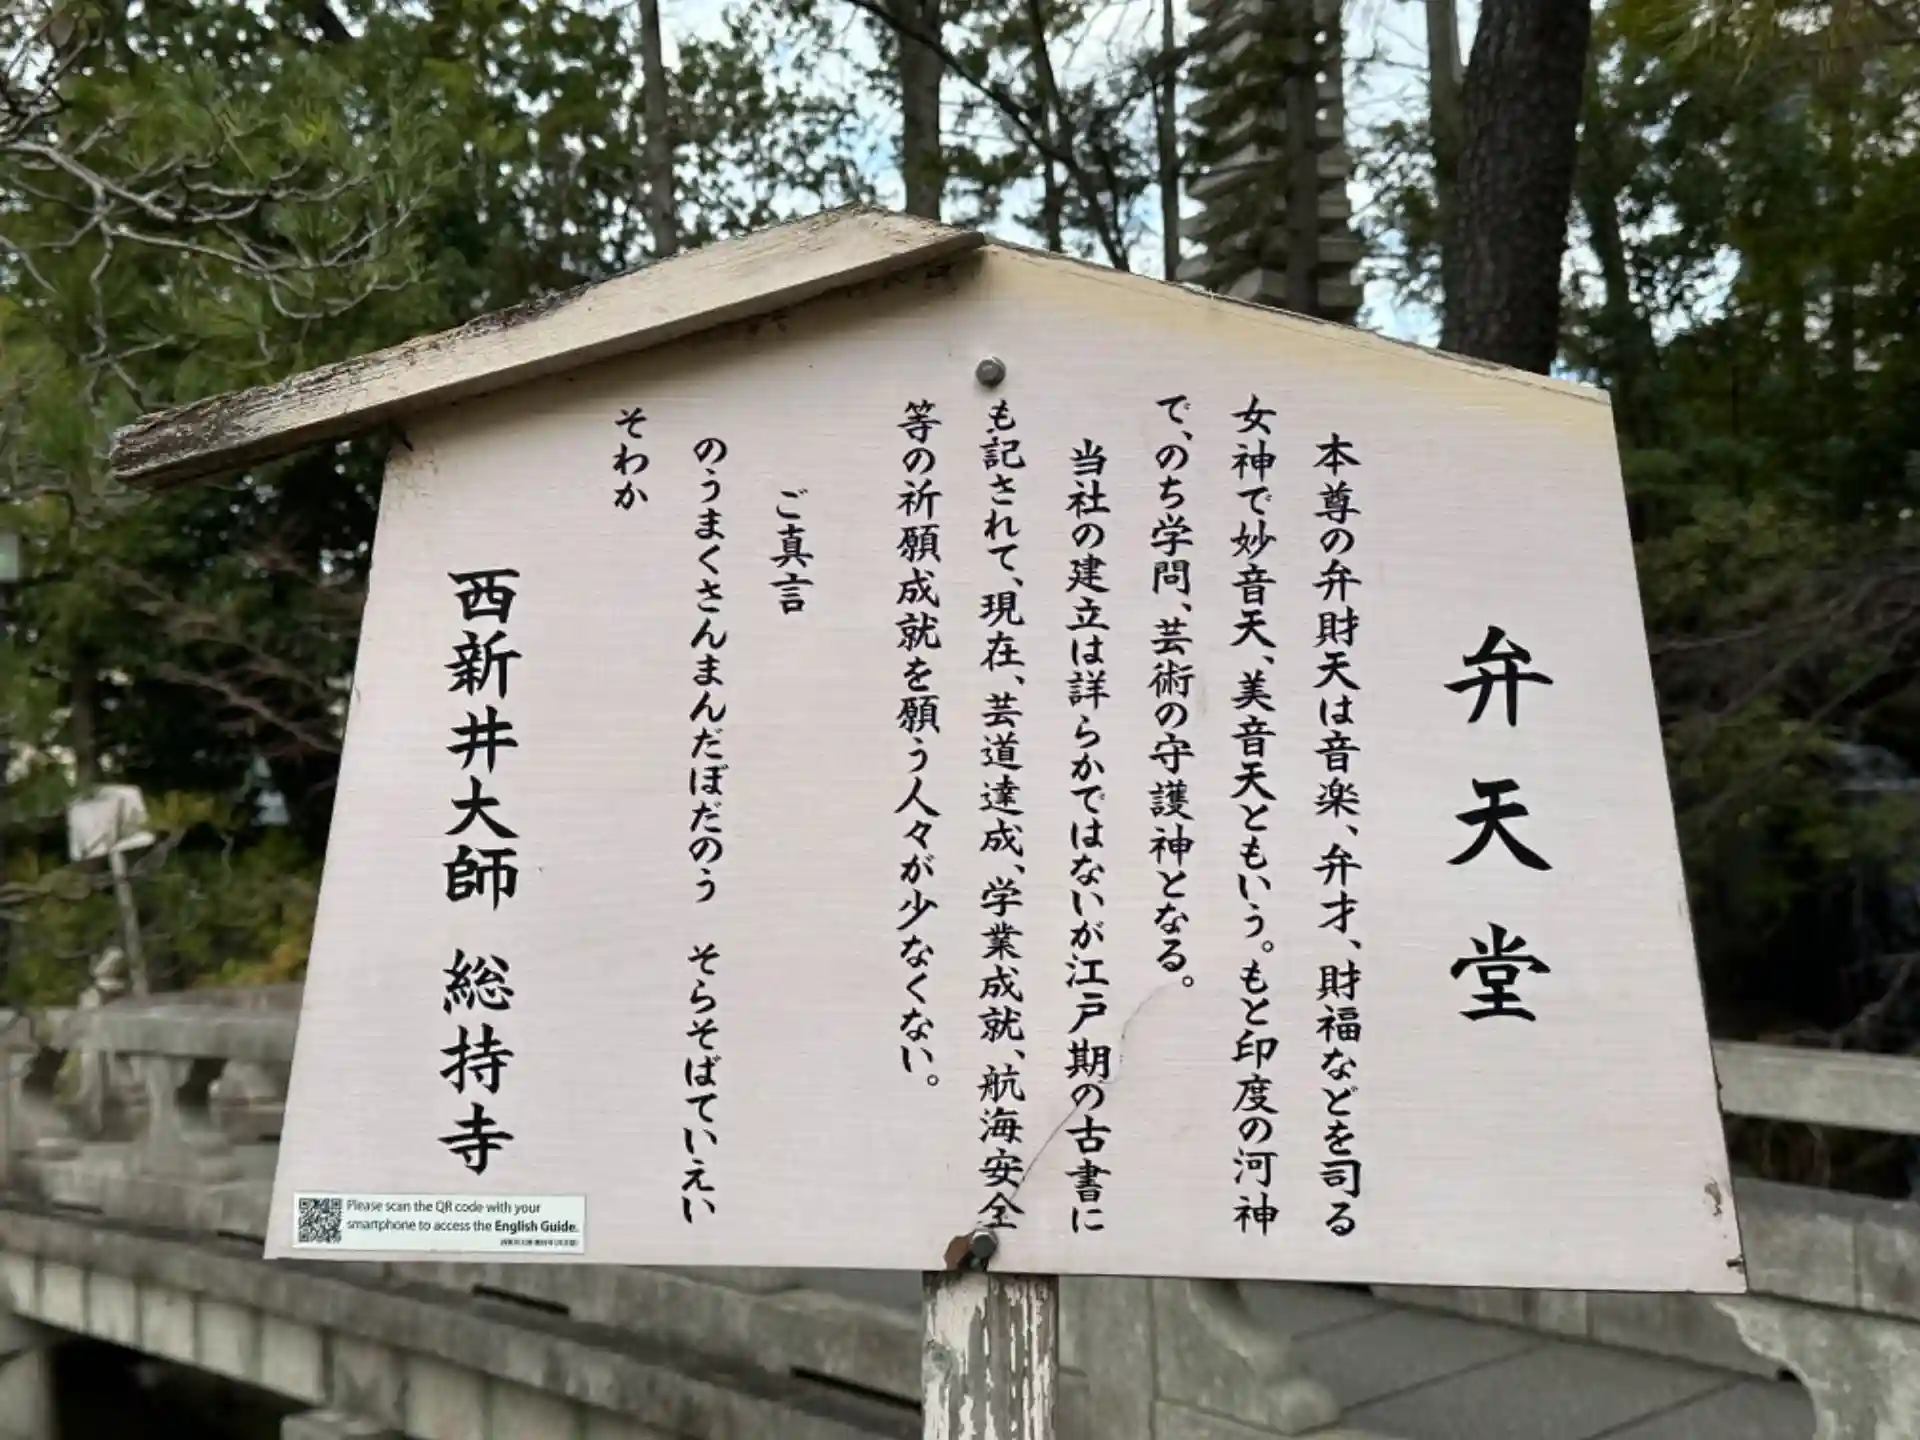 弁天堂
本尊の弁財天は音楽、弁才、財福などを司る
女神で妙音天、美音天ともいう。もと印度の河神
で、のち学問、芸術の守護神となる。
当社の建立は詳らかではないが江戸期の古書に
も記されて、現在、芸道達成、学業成就、航海安全
等の祈願成就を願う人々が少なくない。
ご真言
のうまくさんまんだぼだのう そらそばていえい
そわか
西新井大師 総持寺
Please scan the QR code with your
smartphone to access the English Guide.